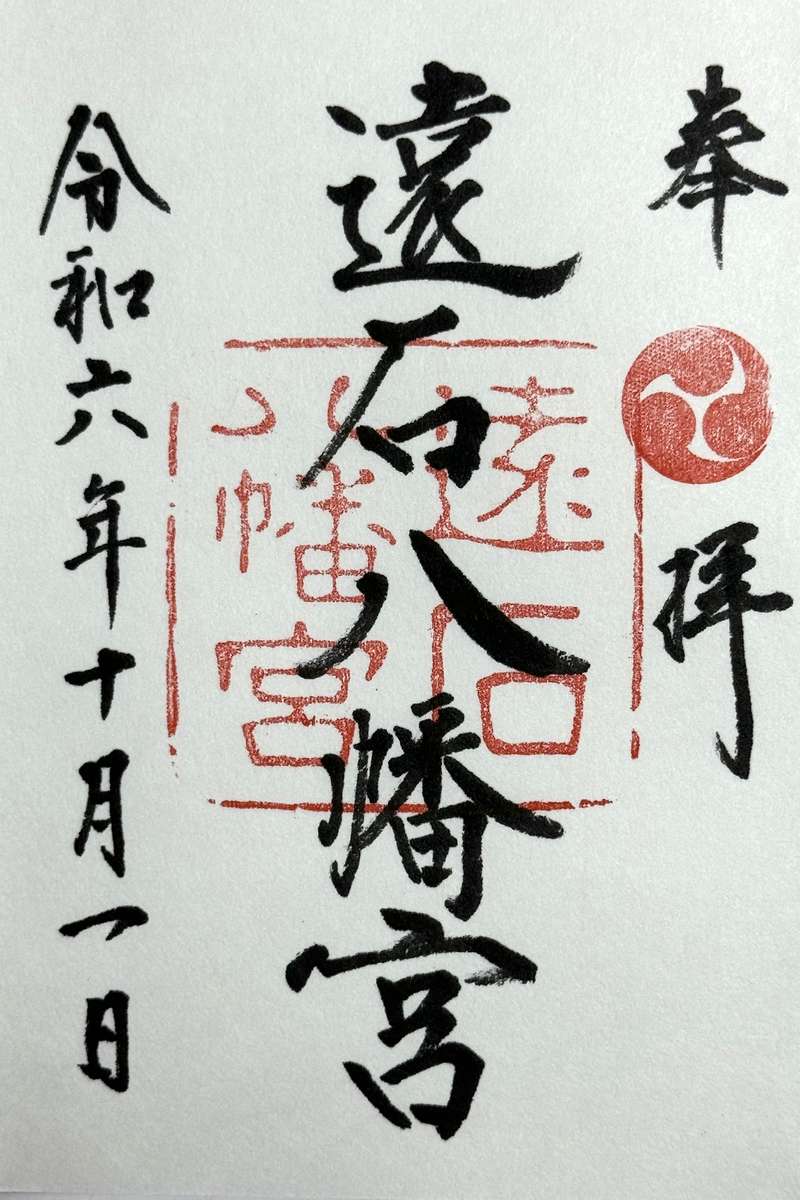 奉拝
遠石八幡宮
遠石
八幡宮
令和六年十月一日